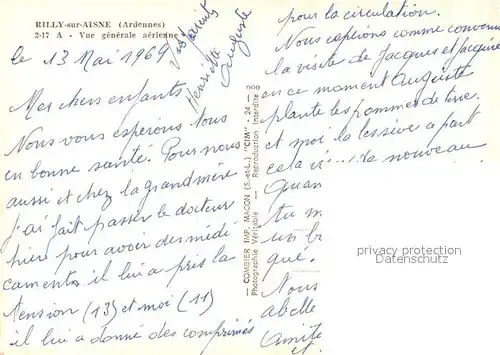 RILLY-sur-AISNE (Ardennes)
2-17 A - Vue générale aérienne
le 13 Mai 1969
Vos parents
Henriette
Auguste
Mes chers enfants
Nous vous espérons tous
en bonne santé. Pour nous
aussi et chez la grandmère
j'ai fait passer le docteur
hier pour avoir des médi
caments il lui a pris la
tension (13) et moi (11)
il lui a donné des comprimés
COMBIER IMP. MACON (S.-et-L.) "CIM" - 24 -
Photographie Véritable - Reproduction Interdite
pour la circulation.
Nous espérons comme convenu
la visite de Jacques et Jacqueline
en ce moment Auguste
plante les pommes de terre
et moi la lessive a part
cela vi... de nouveau
Quan
tu m
un b
que.
Nous
abelle
Amitié
et
privacy protection
Datenschutz